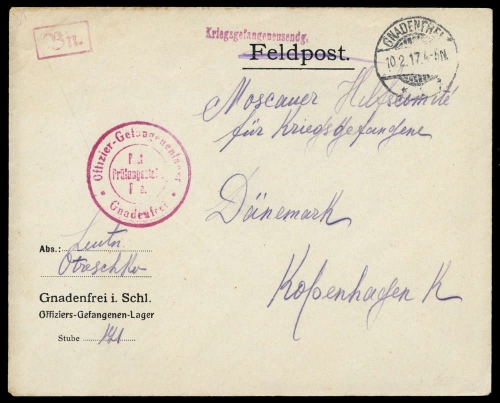 Kriegsgefangenensendg.
Feldpost.
GNADENFREI
10.2.17.4-5N.
Moscauer Hilfscomité
für Kriegsgefangene
Offizier-Gefangenenlager
Gnadenfrei
Dänemark
Abs.: Leutn
Otreschko
Kopenhagen K
Gnadenfrei i. Schl.
Offiziers-Gefangenen-Lager
Stube 141